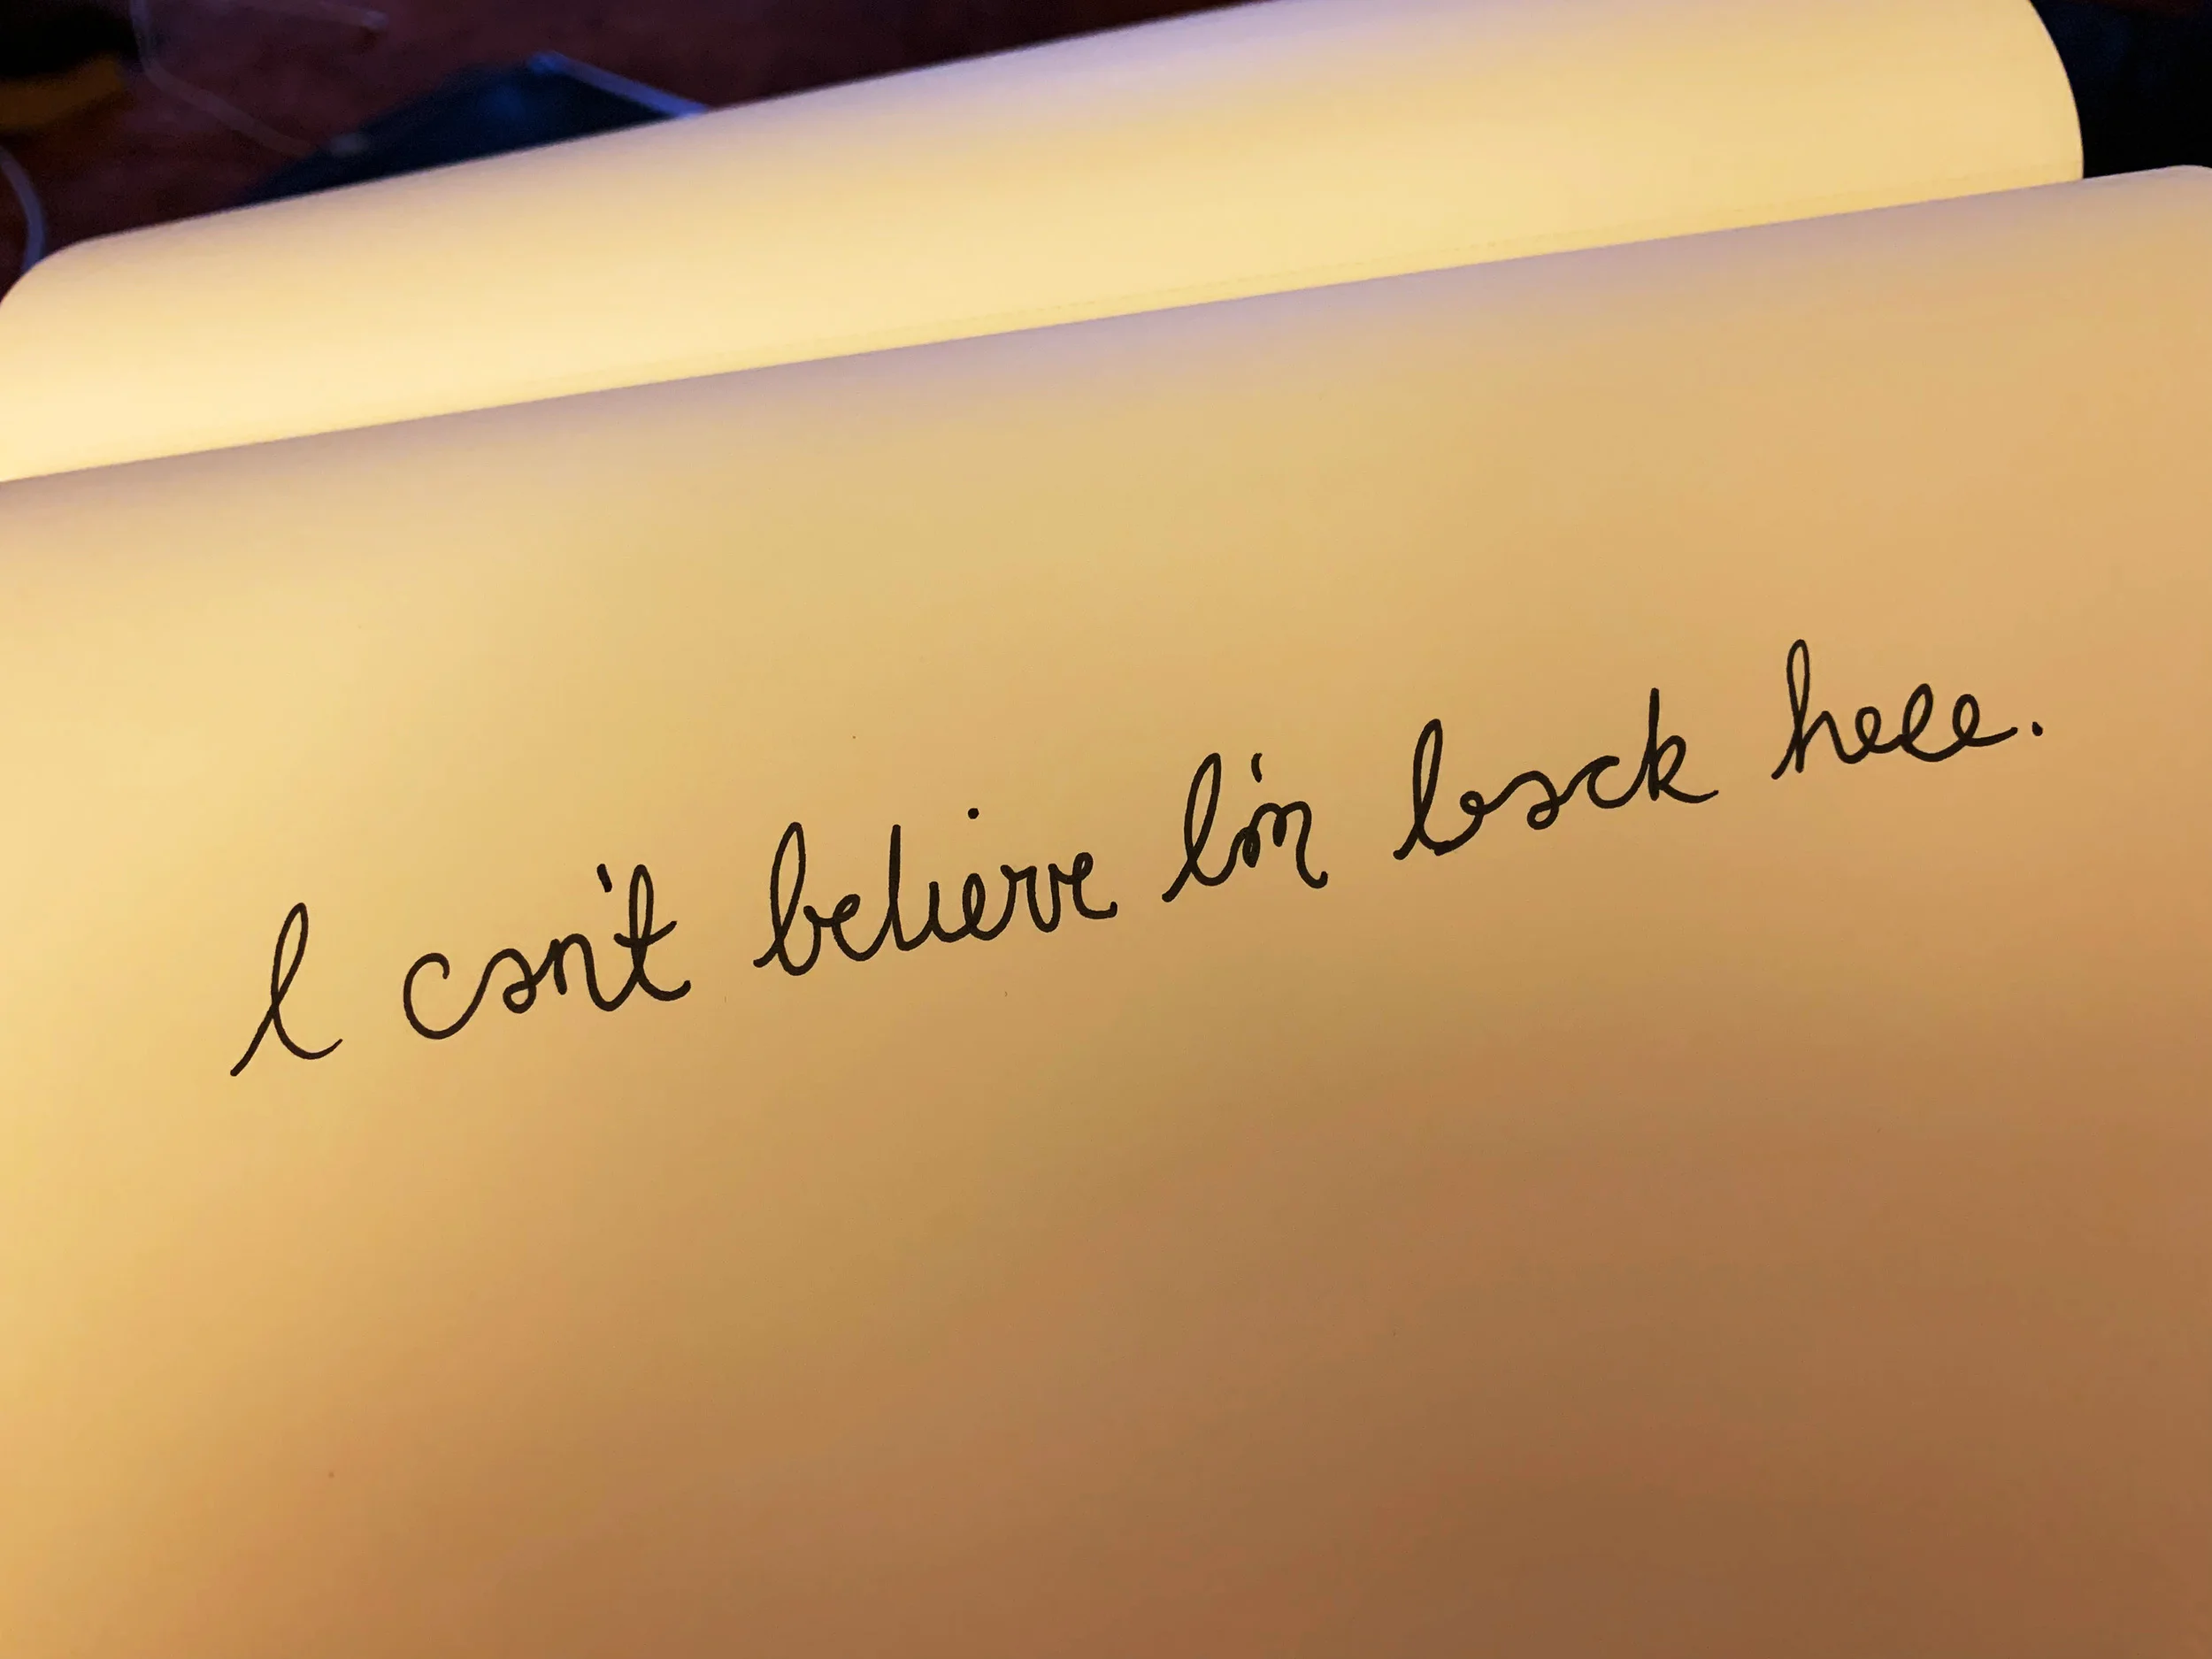 I can't believe I'm back here.